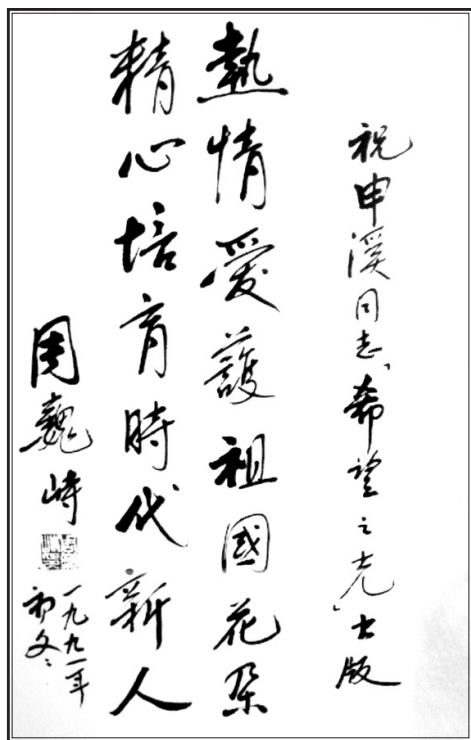 祝申溪同志「希望之光」出版
熱情愛護祖國花朵
精心培育時代新人
周巍峙
一九九一年
初冬